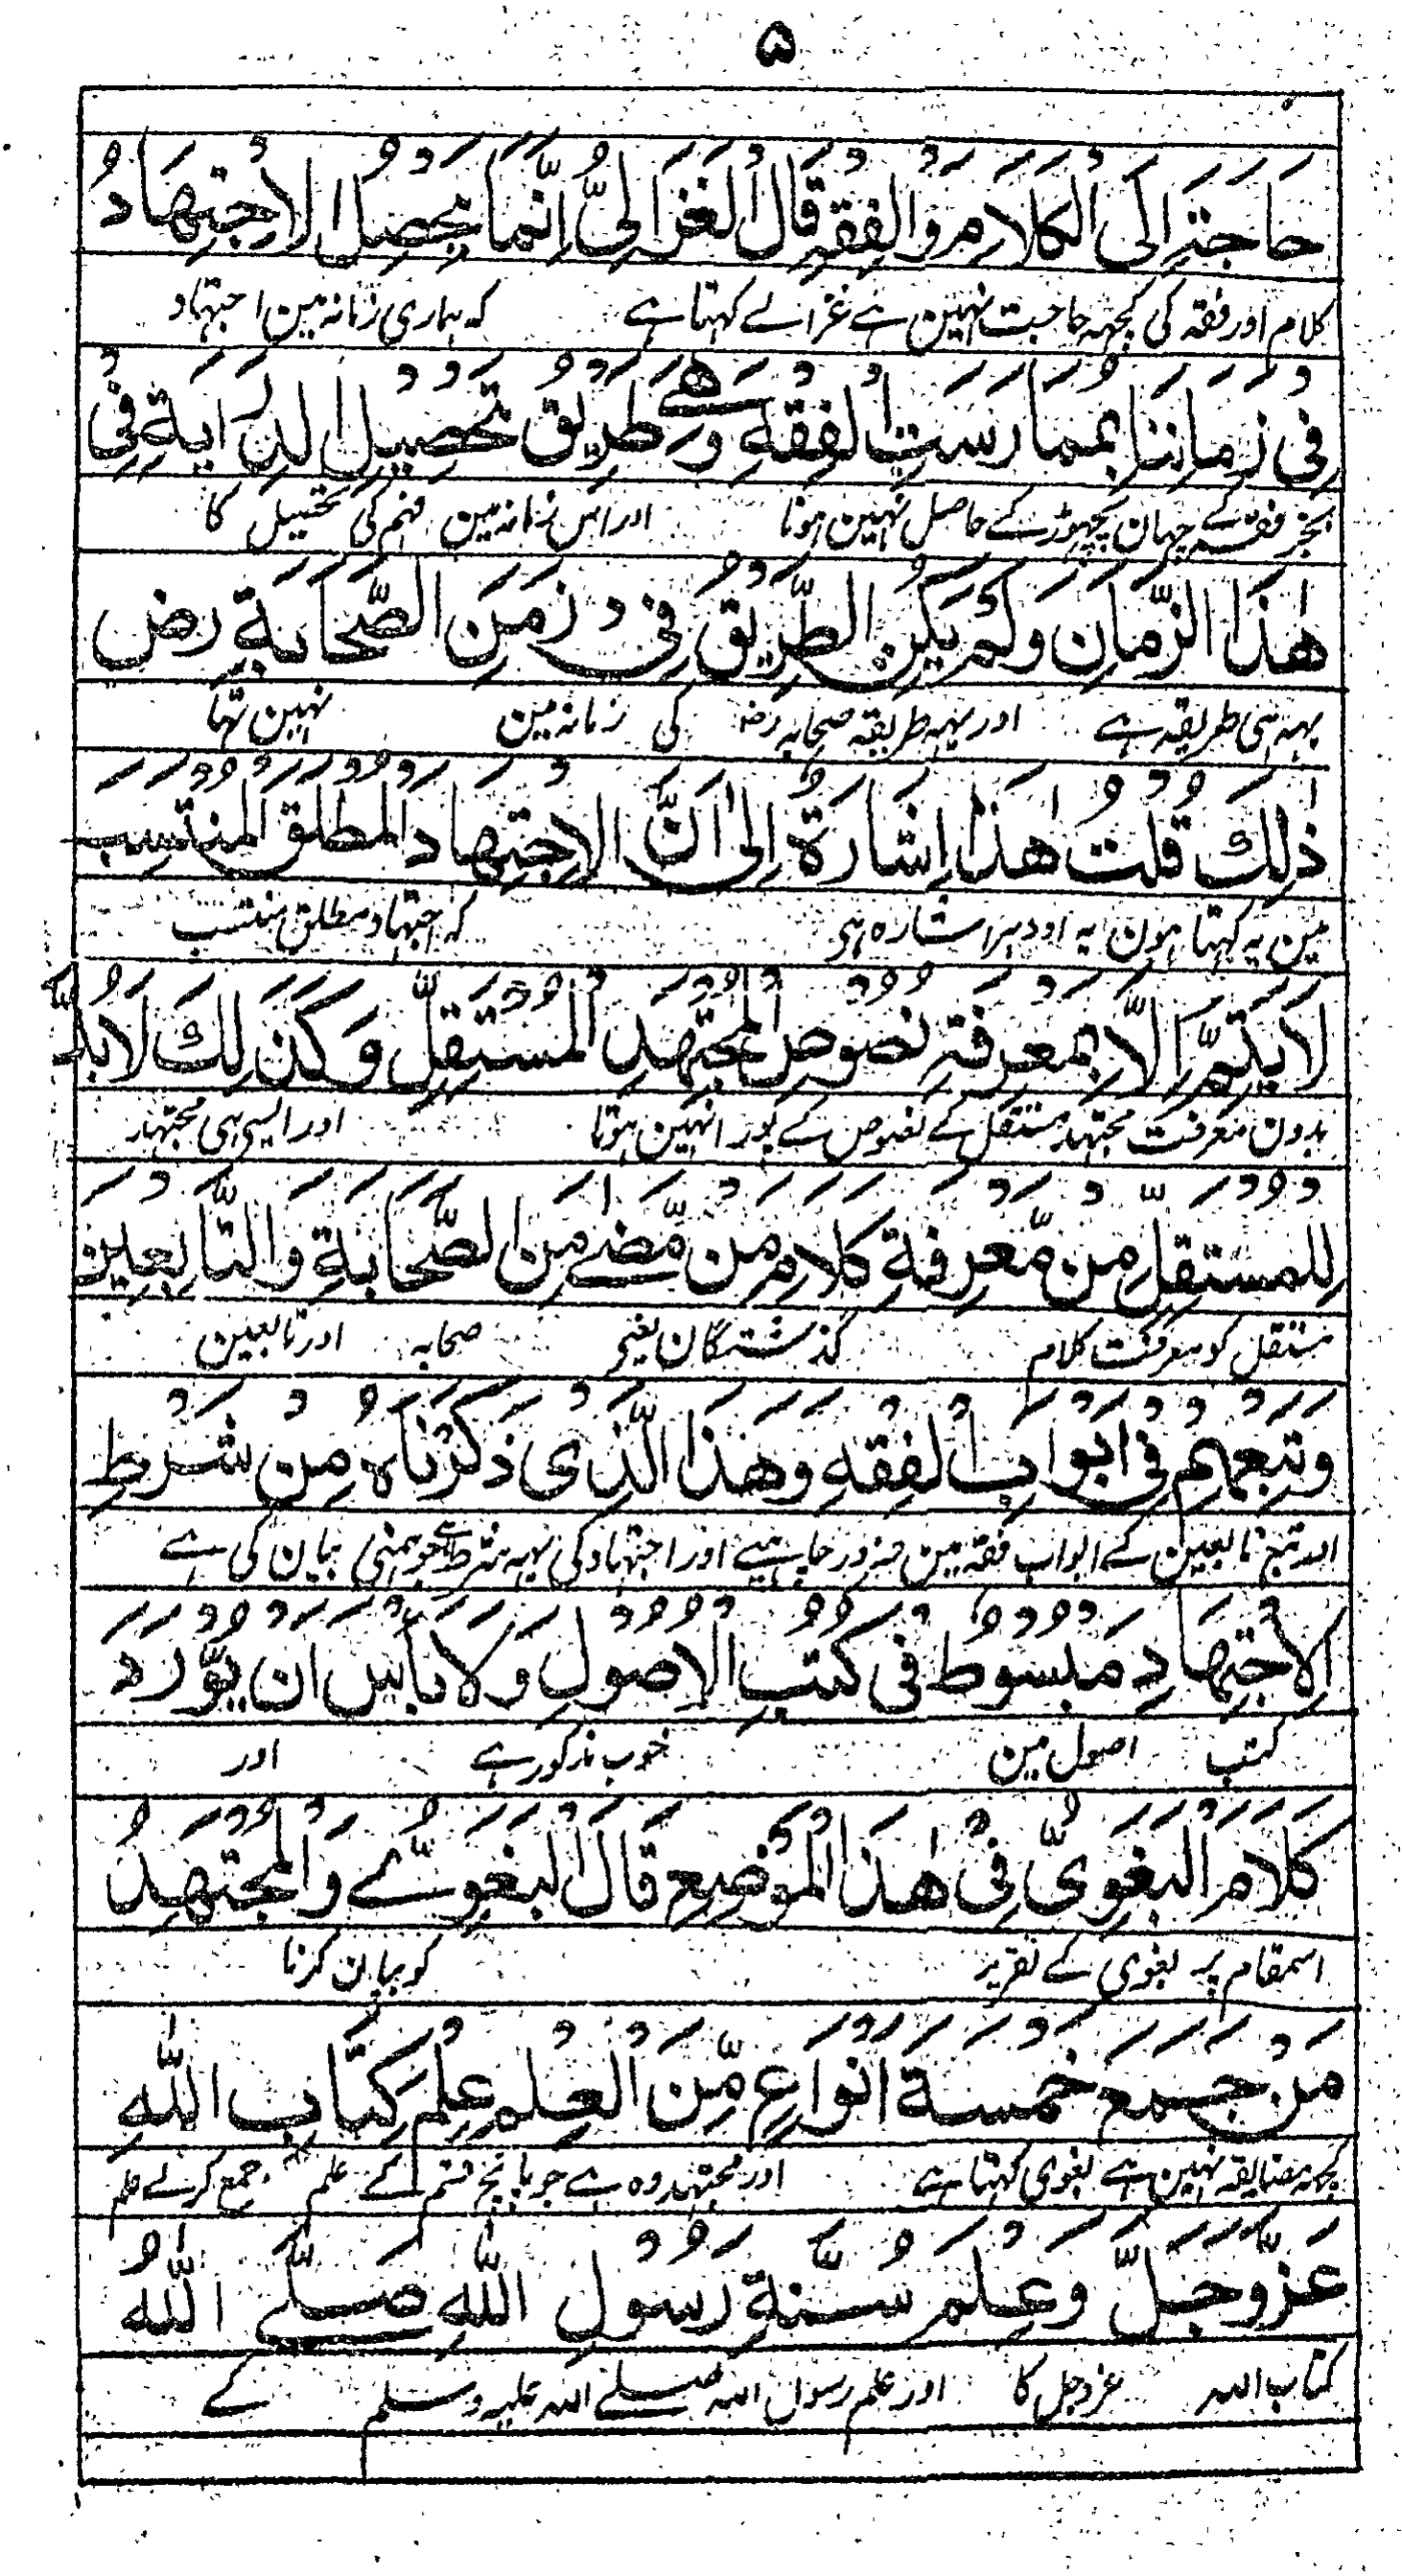 ۵
حَاجَةَ اِلَی الْکَلَامِ وَالْفِقْهِ قَالَ الْغَزَالِیُّ اِنَّمَا یَحْصِلُ الْاِجْتِهَادُ
کلام اور فقہ کی کچھہ حاجت نہین ہے غزالے کہتا ہے کہ ہماری زمانہ مین اجتہاد
فِیْ زَمَانِنَا بِمُمَارَسَتِ الْفِقْهِ وَهِیَ طَرِیْقُ تَحْصِیْلِ الدِّرَایَةِ فِیْ
بجز فقہ کے چہان پچہوڑ کے حاصل نہین ہوتا اور اس زمانہ مین فہم کی تحصیل کا
هٰذَا الزَّمَانِ وَلَمْ یَکُنِ الطَّرِیْقُ فِیْ زَمَنِ الصَّحَابَةِ رض
یہہ ہی طریقہ ہے اور یہہ طریقہ صحابہ رض کی زمانہ مین نہین تہا
ذٰلِكَ قُلْتُ هٰذَا اِشَارَةٌ اِلٰی اَنَّ الْاِجْتِهَادَ الْمُطْلَقَ الْمُنْتَسِبَ
مین یہ کہتا ہون یہ اودہر اشارہ ہی کہ اجتہاد مطلق منتسب
لَا یَتِمُّ اِلَّا بِمَعْرِفَةِ نُصُوْصِ الْمُجْتَهِدِ الْمُسْتَقِلِّ وَکَذٰلِكَ لَابُدَّ
بدون معرفت مجتہد مستقل کے نصوص کے پورا نہین ہوتا اور ایسی ہی مجتہد
لِلْمُسْتَقِلِّ مِنْ مَّعْرِفَةِ کَلَامِ مَنْ مَّضٰے مِنَ الصَّحَابَةِ وَالتَّابِعِیْنَ
مستقل کو معرفت کلام گذشتگان یعنی صحابہ اور تابعین
وَتَبَعِهِمْ فِیْ اَبْوَابِ الْفِقْهِ وَهٰذَا الَّذِیْ ذَکَرْنَاهُ مِنْ شَرْطِ
اور تبع تابعین کے ابواب فقہ مین ضرور چاہیے اور اجتہاد کی یہہ شرط جو ہمنی بیان کی ہے
الْاِجْتِهَادِ مَبْسُوْطٌ فِیْ کُتُبِ الْاُصُوْلِ وَلَا بَأْسَ اَنْ یُّوْرَدَ
کتب اصول مین خوب مذکور ہے اور
کَلَامُ الْبَغَوِیِّ فِیْ هٰذَا الْمَوْضِعِ قَالَ الْبَغَوِیُّ وَالْمُجْتَهِدُ
اسمقام پر بغوی کے تقریر کو بیان کرنا
مَنْ جَمَعَ خَمْسَةَ اَنْوَاعٍ مِّنَ الْعِلْمِ عِلْمَ کِتَابِ اللّٰهِ
کچھہ مضایقہ نہین ہے بغوی کہتا ہے اور مجتہد وہ ہے جو پانچ قسم کے علم جمع کرلے علم
عَزَّوَجَلَّ وَعِلْمَ سُنَّةِ رَسُوْلِ اللّٰهِ صَلَّے اللّٰهُ
کتاب اللہ عزوجل کا اور علم رسول اللہ صلے اللہ علیہ وسلم کے